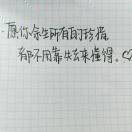 愿你余生所有的珍惜
都不用靠失去来懂得。♡